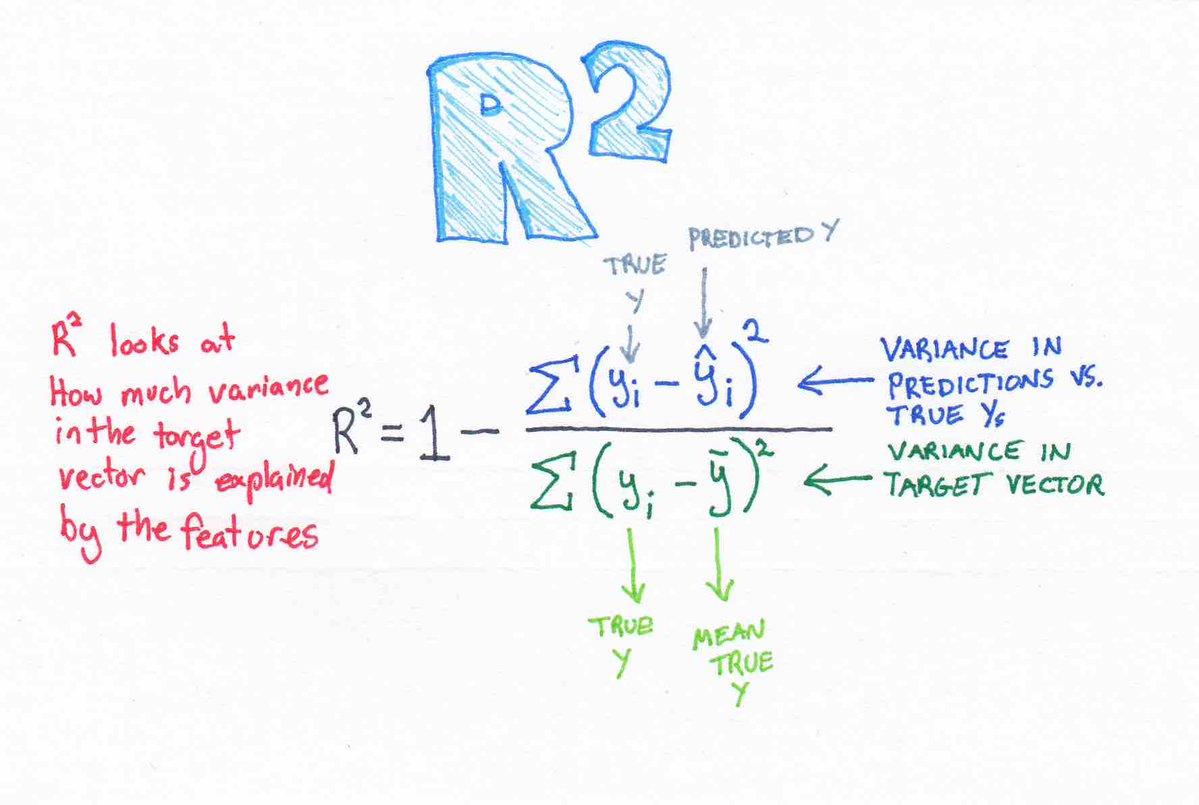 R²
PREDICTED Y
TRUE
Y
R² looks at
How much variance
in the target
vector is explained
by the features
R² = 1 − ∑(yᵢ − ŷᵢ)² / ∑(yᵢ − ȳ)²
VARIANCE IN
PREDICTIONS VS.
TRUE Ys
VARIANCE IN
TARGET VECTOR
TRUE
Y
MEAN
TRUE
Y